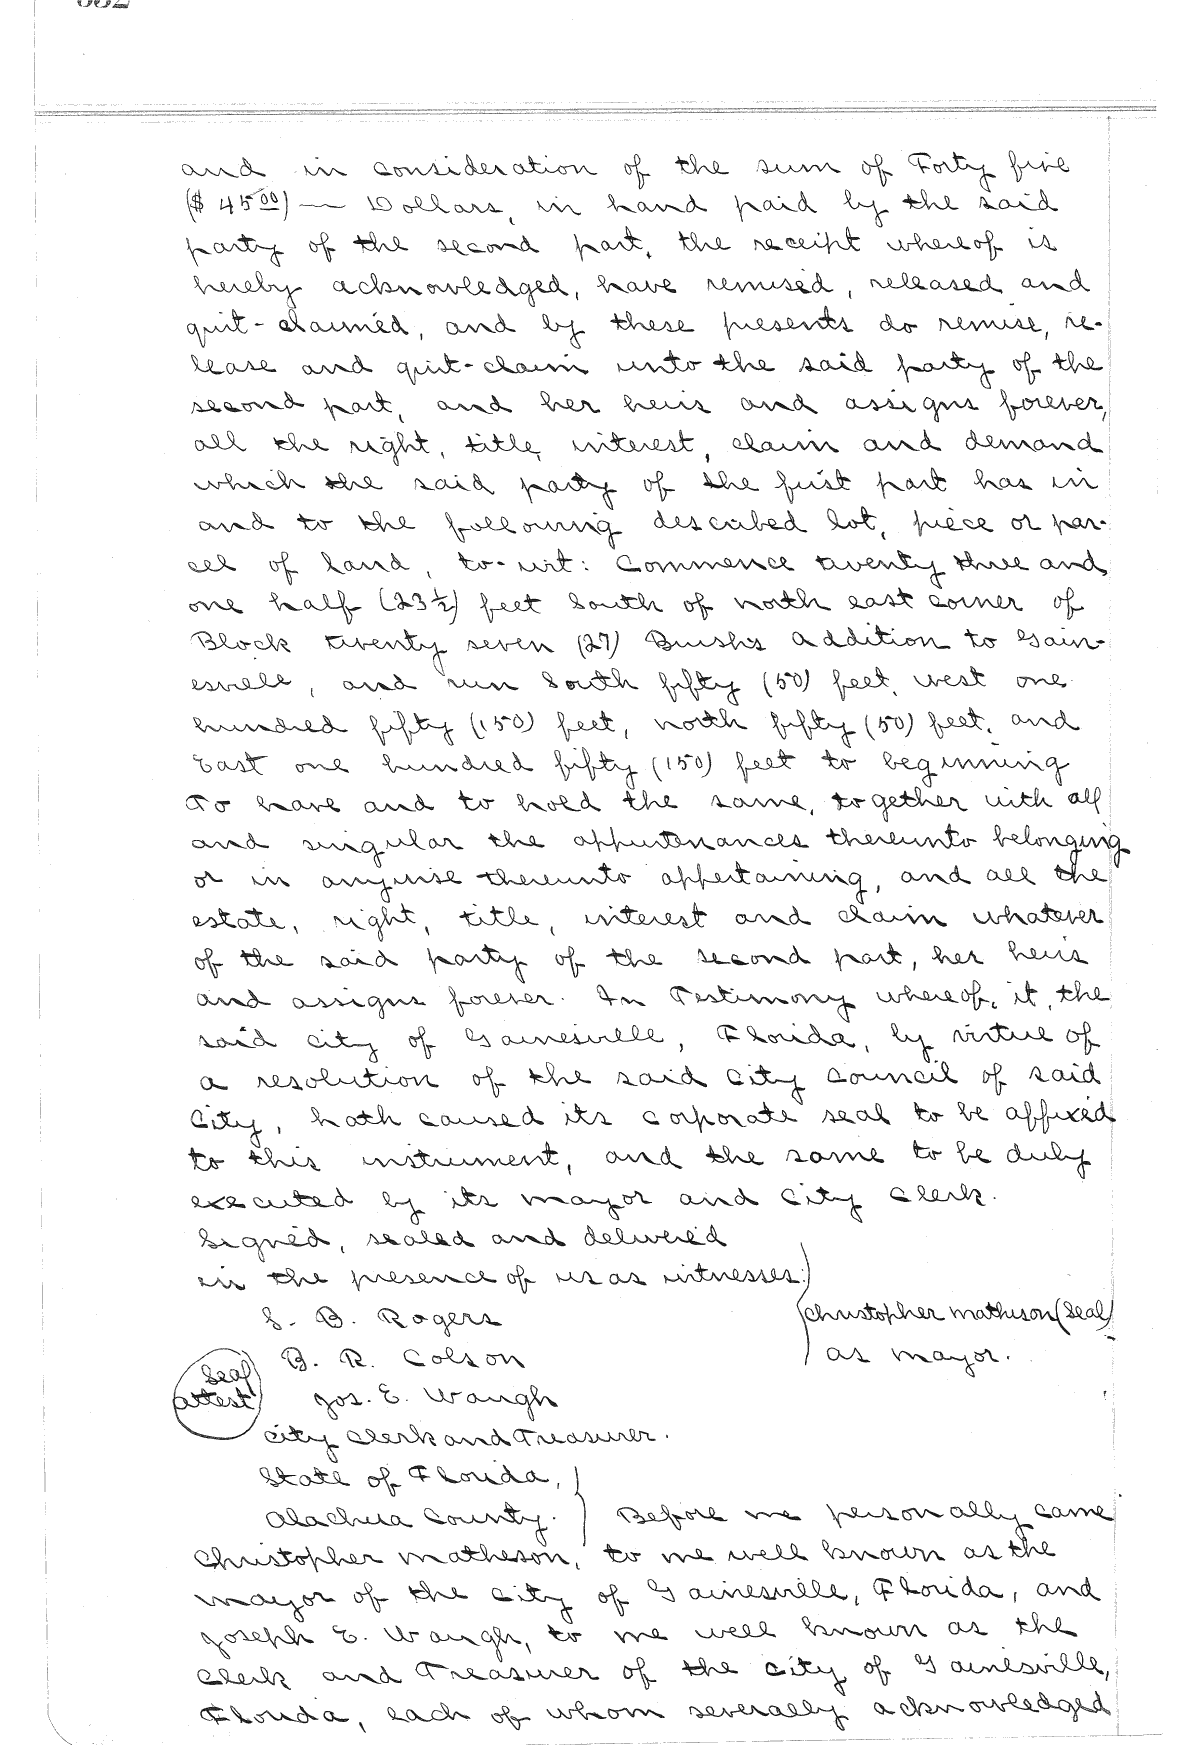 and in consideration of the sum of Forty five
($4500) — Dollars, in hand paid by the said
party of the second part, the receipt whereof is
hereby acknowledged, have remised, released and
quit-claimed, and by these presents do remise, re-
lease and quit-claim unto the said party of the
second part, and her heirs and assigns forever,
all the right, title, interest, claim and demand
which the said party of the first part has in
and to the following described lot, piece or par-
cel of land, to-wit: Commence twenty three and
one half (23½) feet South of north east corner of
Block twenty seven (27) Bush's addition to Gain-
esville, and run South fifty (50) feet, west one
hundred fifty (150) feet, north fifty (50) feet, and
East one hundred fifty (150) feet to beginning
To have and to hold the same, together with all
and singular the appurtenances thereunto belonging
or in anywise thereunto appertaining, and all the
estate, right, title, interest and claim whatever
of the said party of the second part, her heirs
and assigns forever. In Testimony whereof, it, the
said city of Gainesville, Florida, by virtue of
a resolution of the said City Council of said
City, hath caused its corporate seal to be affixed
to this instrument, and the same to be duly
executed by its mayor and City Clerk.
Signed, sealed and delivered
in the presence of us as witnesses:
S. B. Rogers
Christopher Matheson (Seal)
B. R. Colson
as mayor.
Seal
attest
Jos. E. Waugh
City Clerk and Treasurer.
State of Florida,
Alachua County. Before me personally came
Christopher Matheson, to me well known as the
mayor of the city of Gainesville, Florida, and
Joseph E. Waugh, to me well known as the
Clerk and Treasurer of the city of Gainesville,
Florida, each of whom severally acknowledged